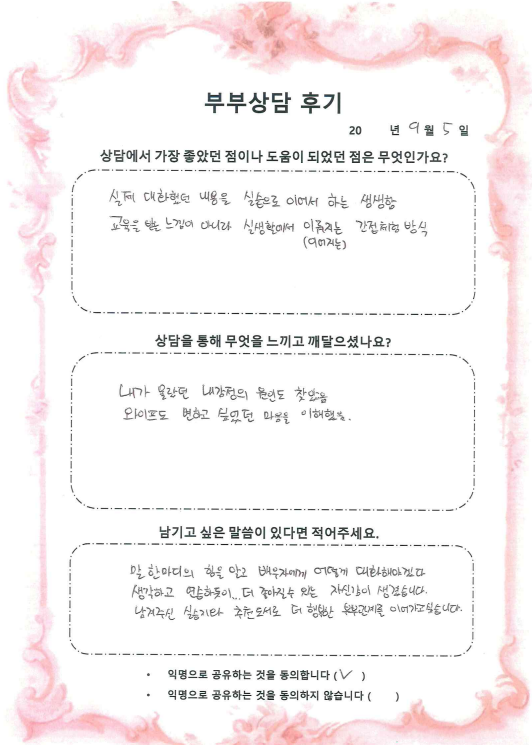 부부상담 후기
20 년 9월 5일
상담에서 가장 좋았던 점이나 도움이 되었던 점은 무엇인가요?
실제 대화했던 내용을 실습으로 이어서 하는 생생함
교육을 받는 느낌이 아니라 실생활에서 이뤄지는 간접체험 방식
(이어지는)
상담을 통해 무엇을 느끼고 깨달으셨나요?
내가 몰랐던 내감정의 원인도 찾았음
와이프도 변하고 싶었던 마음을 이해했음.
남기고 싶은 말씀이 있다면 적어주세요.
말 한마디의 힘을 알고 배우자에게 어떻게 대화해야겠다
생각하고 연습하듯이... 더 좋아질수 있는 자신감이 생겼습니다.
남겨주신 실습기타 추천도서로 더 행복한 부부관계를 이어가고싶습니다.
• 익명으로 공유하는 것을 동의합니다 (✓)
• 익명으로 공유하는 것을 동의하지 않습니다 ( )